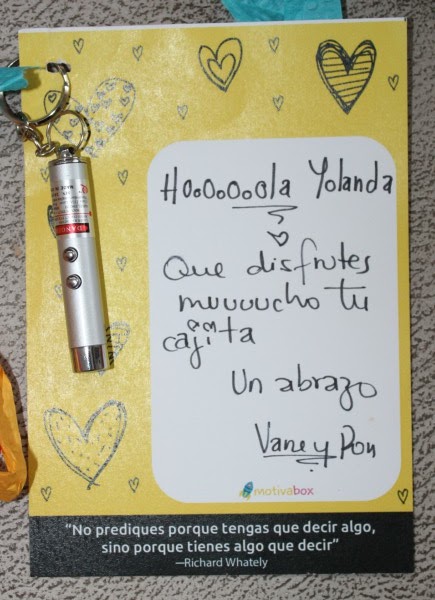 Hoooooola Yolanda
Que disfrutes
muuuucho tu
cajita
Un abrazo
Vane y Pon
motivabox
"No prediques porque tengas que decir algo,
sino porque tienes algo que decir"
—Richard Whately